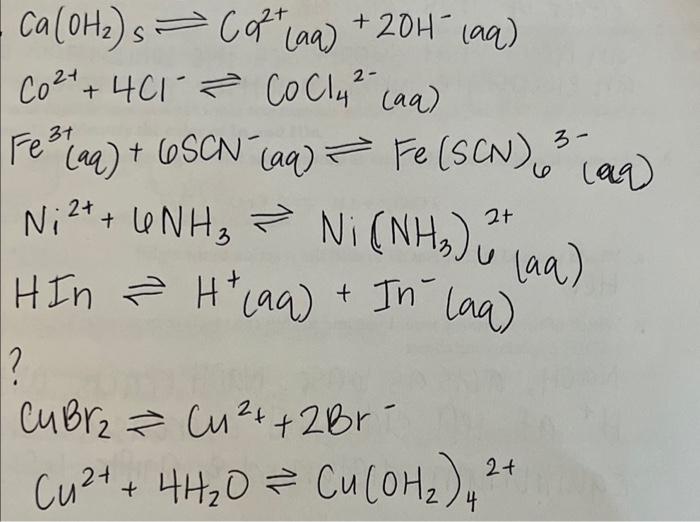 Ca(OH₂)s ⇌ Ca²⁺(aq) + 2OH⁻(aq)
Co²⁺ + 4Cl⁻ ⇌ CoCl₄²⁻(aq)
Fe³⁺(aq) + 6SCN⁻(aq) ⇌ Fe(SCN)₆³⁻(aq)
Ni²⁺ + 6NH₃ ⇌ Ni(NH₃)₆²⁺(aq)
HIn ⇌ H⁺(aq) + In⁻(aq)
?
CuBr₂ ⇌ Cu²⁺ + 2Br⁻
Cu²⁺ + 4H₂O ⇌ Cu(OH₂)₄²⁺